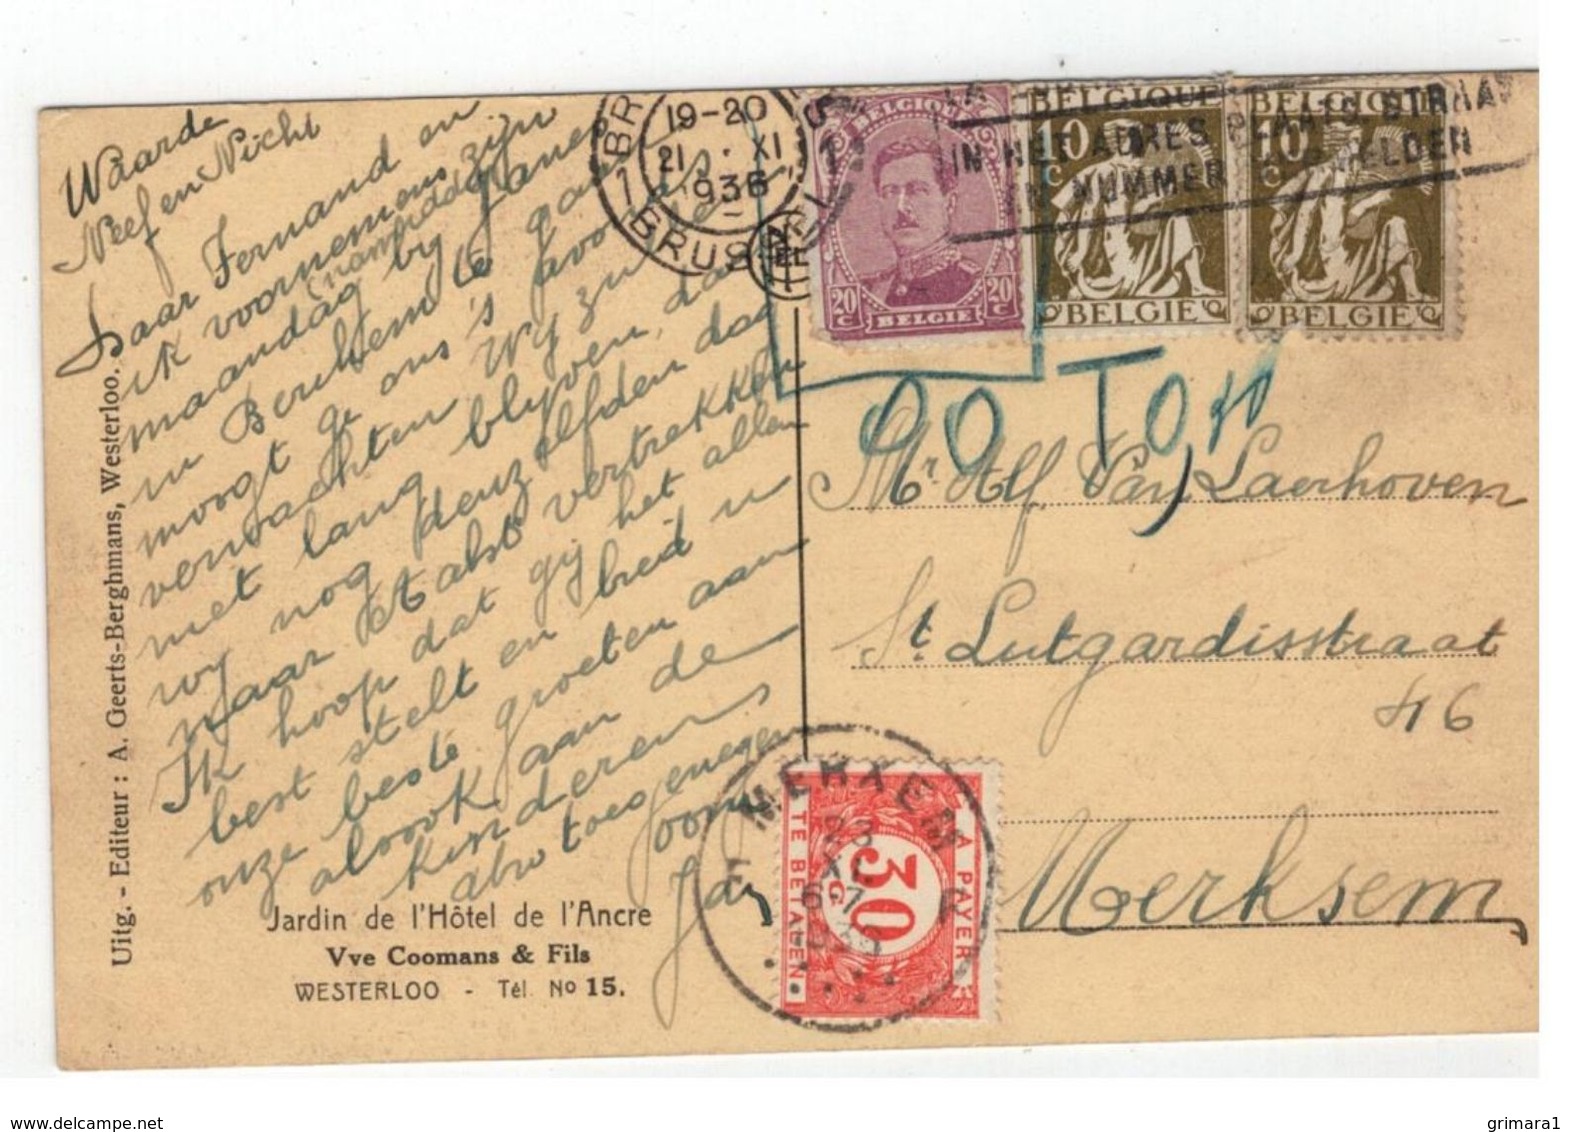 Waarde
Neef en Nicht
Daar Fernand en
ik voornemens zijn
maandag namiddag by Janer
in Berchem te gaan
moogt ge ons 's avonds
verwachten Wij zullen
niet lang blyven, daar
wy nog denzelfden dag
naar Aalst vertrekken
Ik hoop dat gij het allen
best stelt en bied u
onze beste groeten aan
alsook aan de
kinderen
Uw toegenegen
oom
Jan
Uitg. - Editeur : A. Geerts-Berghmans, Westerloo.
Jardin de l'Hôtel de l'Ancre
Vve Coomans & Fils
WESTERLOO - Tél. No 15.
1 BRUSSEL 1
19-20
21 · XI
1936
BELGIQUE
20 C 20 C
BELGIE
BELGIQUE
10 C
BELGIE
BELGIQUE
10 C
BELGIE
IN HET ADRES PLAATS STRAAT
NUMMER
T
Mr Alf. Van Laerhoven
St Lutgardisstraat
46
Merksem
MERKSEM
23
XI
6-7
A PAYER
30 C
TE BETALEN
www.delcampe.net
grimara1